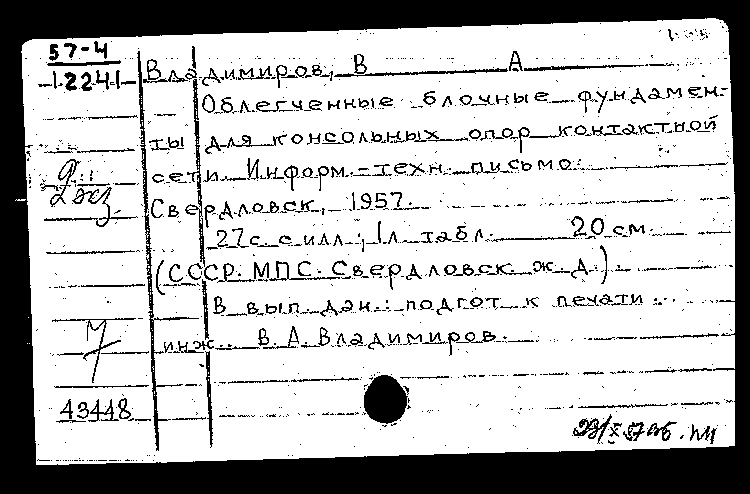 57-4
12241
Владимиров, В А
Облегченные блочные фундамен-
ты для консольных опор контактной
сети. Информ.-техн. письмо.
2 экз.
Свердловск, 1957.
27 с. с илл.; 1 л. табл. 20 см.
(СССР. МПС. Свердловск. ж. д.).
В вып. дан.: подгот. к печати
инж. В. А. Владимиров.
43448